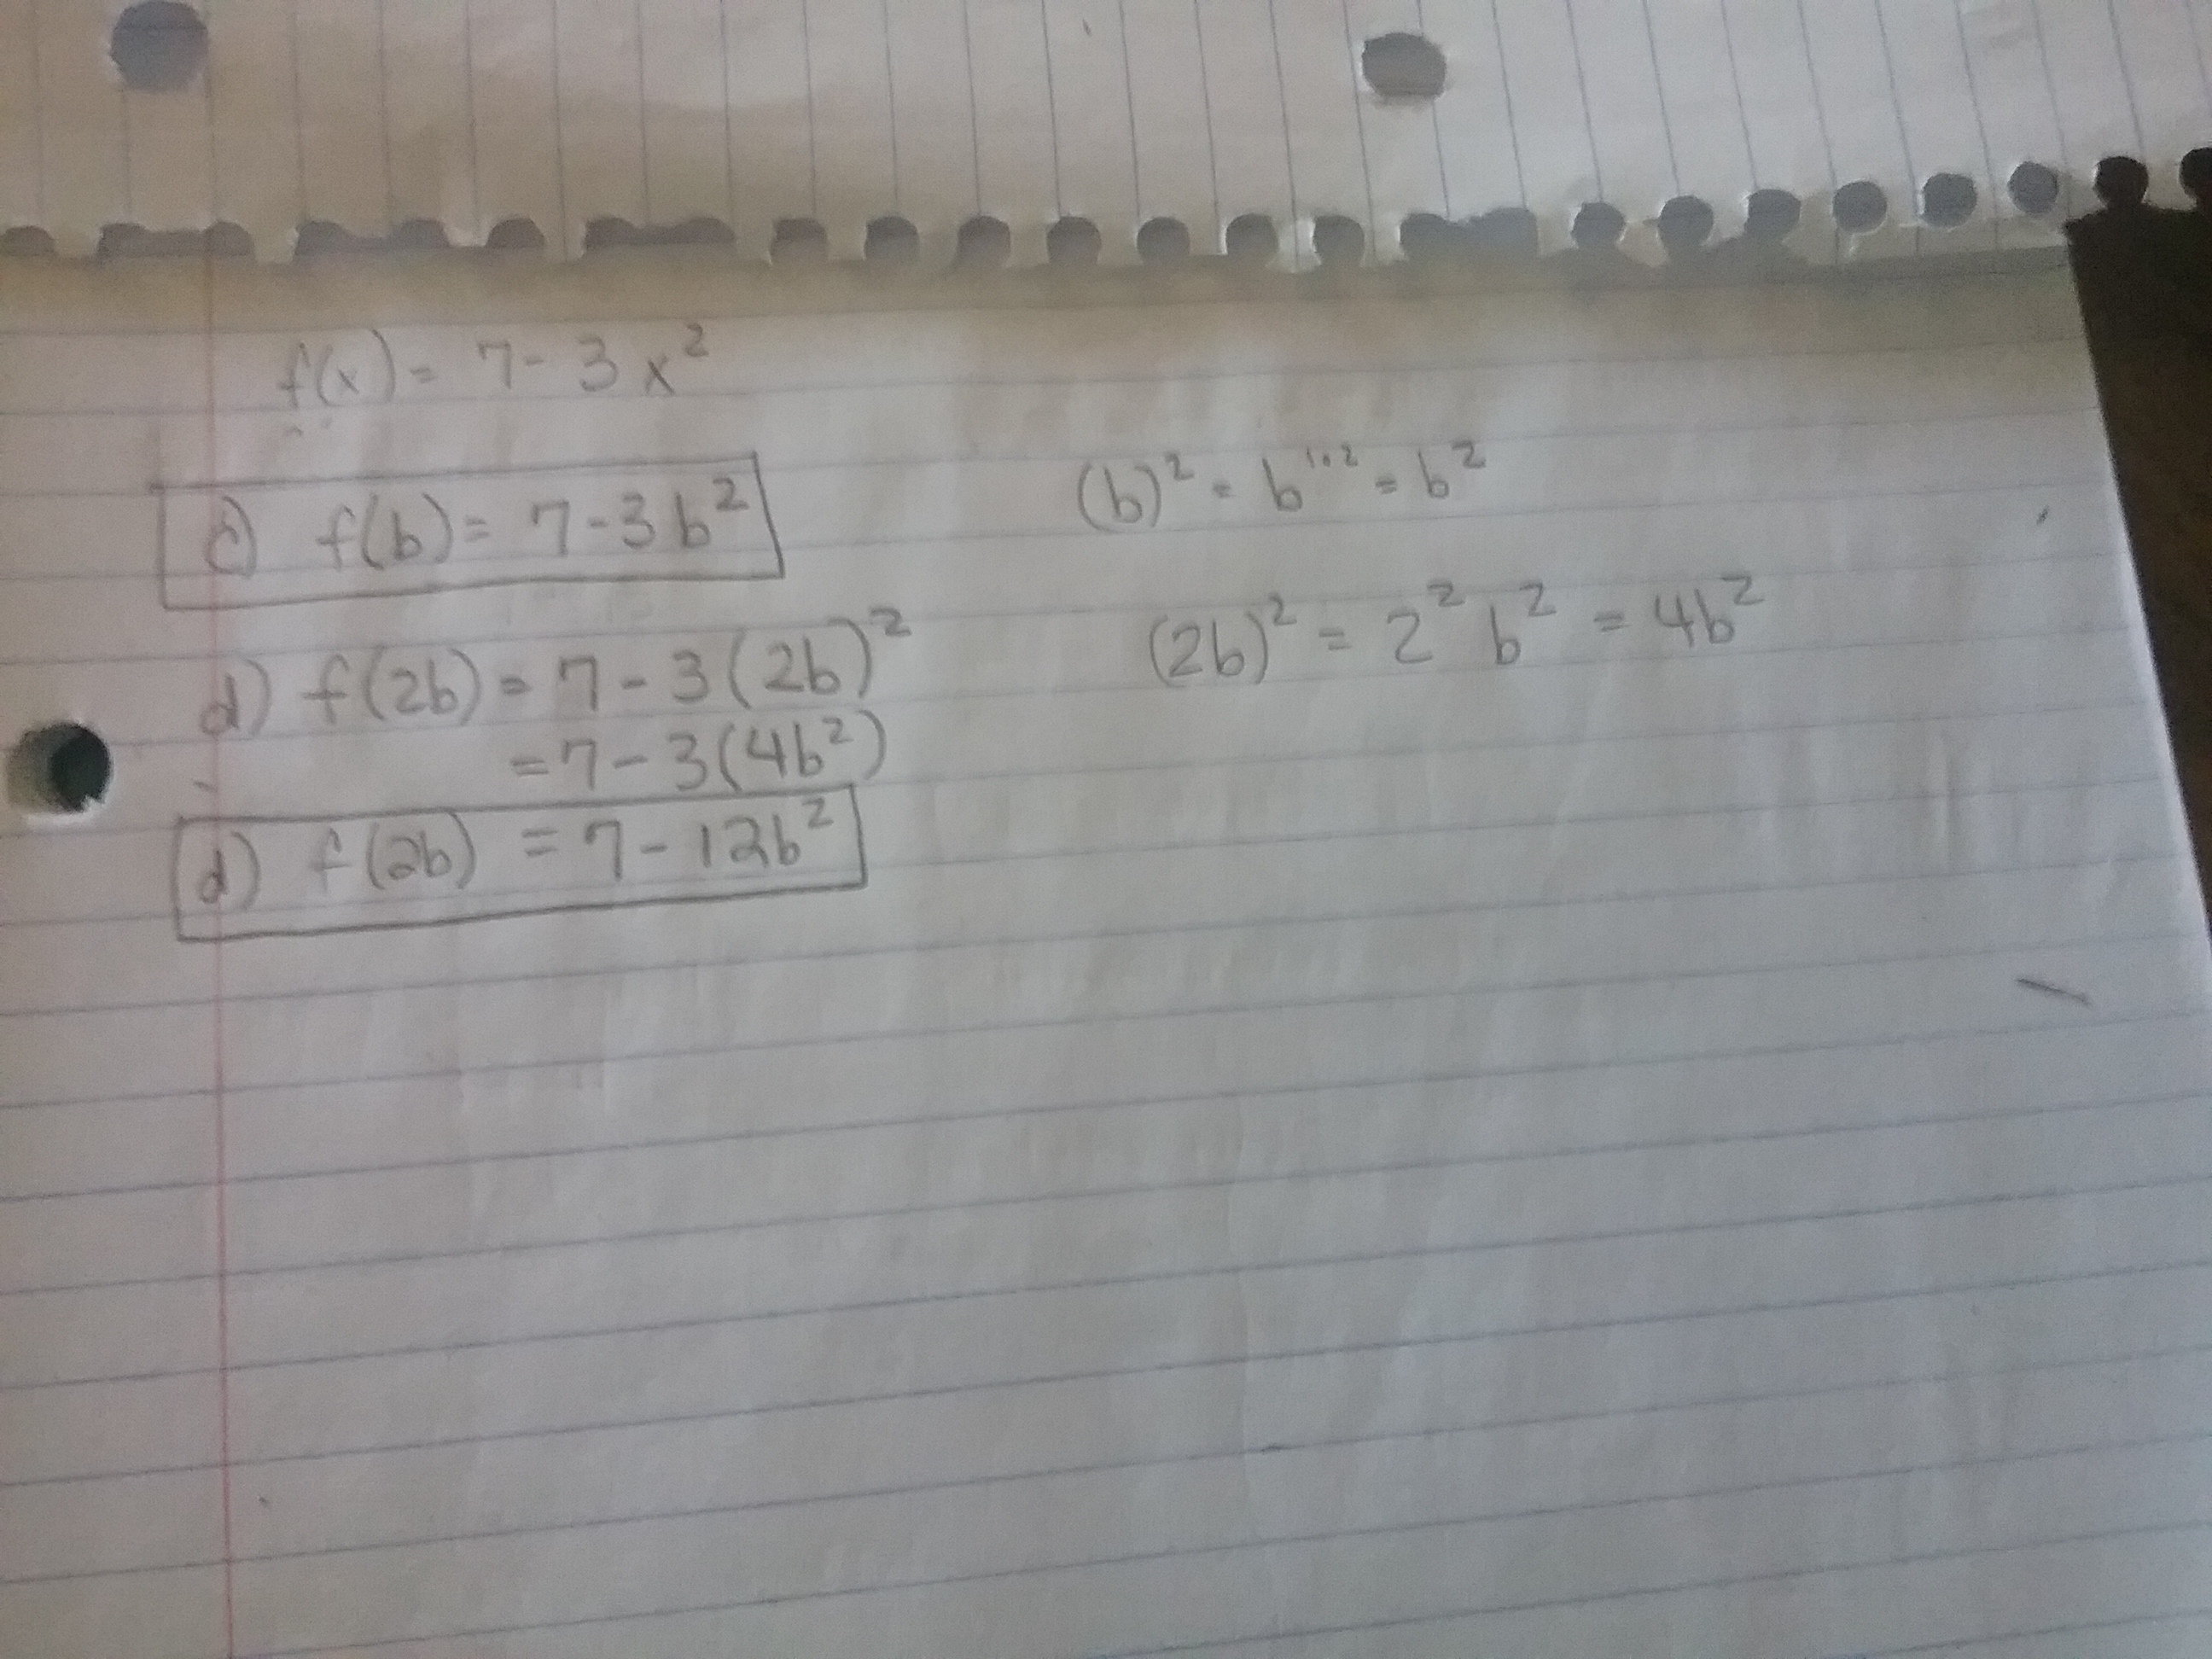 f(x) = 7 - 3x²
c) f(b) = 7 - 3b² (b)² = b¹·² = b²
d) f(2b) = 7 - 3(2b)² (2b)² = 2² b² = 4b²
= 7 - 3(4b²)
d) f(2b) = 7 - 12b²